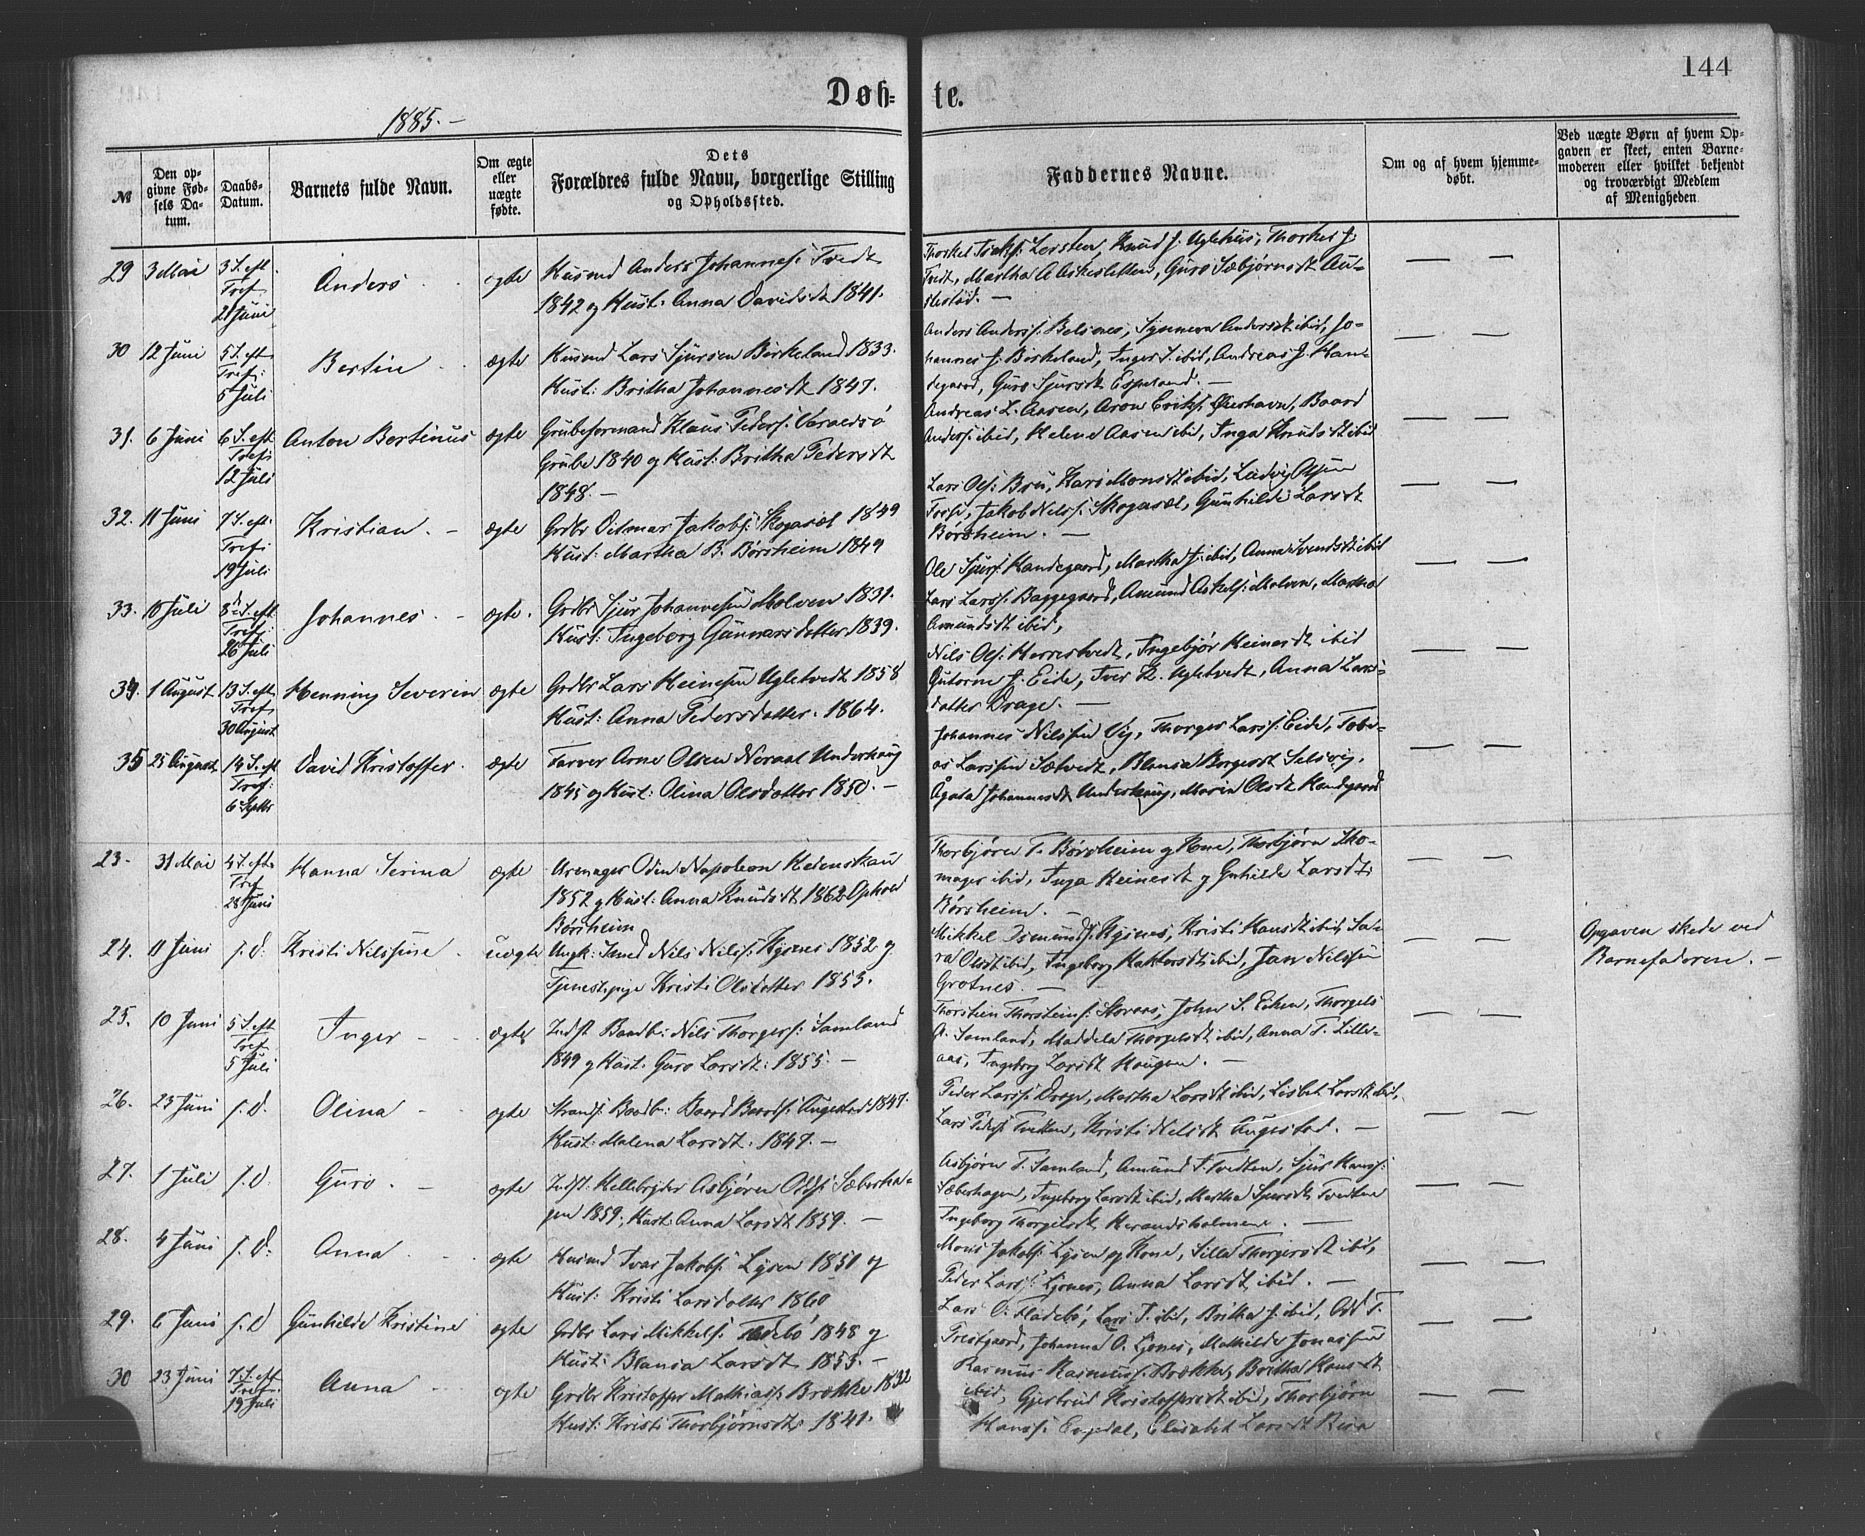 144
Døb-
te.
1885. -
№
Den opgivne Fødsels Datum.
Daabs-Datum.
Barnets fulde Navn.
Om ægte eller uægte fødte.
Dets
Forældres fulde Navn, borgerlige Stilling
og Opholdssted.
Faddernes Navne.
Om og af hvem hjemme-
døbt.
Ved uægte Børn af hvem Op-
gaven er skeet, enten Barne-
moderen eller hvilket bekjendt
og troværdigt Medlem
af Menigheden
29 3 Mai 3 S. eft. Tref. 21 Juni Anders ægte
Husmd Anders Johanness: Tvedt
1842 og Hust: Anna Davidsdt 1841.
30 12 Juni 5 S. eft. Tref: 5 Juli Bertin ægte
Husmd Lars Sjursen Birkeland 1833.
Hust: Britha Johannesdt 1847.
Johannes J. Birkeland, Inger S. ibid, Andreas J. Handegaard, Guro Sjursdt Espeland. -
31. 6 Juni 6 S. eft Tref: 12 Juli Anton Bertinus ægte
Grubeformand Klaus Peders: Varaldsø
Grube 1840 og Hust: Britha Pedersdt
1848. -
Anders: ibid, Helene Aasen ibid, Inga Knudsdt ibid
32. 11 Juni 7 S. eft. Tref: 19 Juli Kristian - ægte
Grdbr Ditmar Jakobs: Skogasel 1849
Hust: Martha B. Børsheim 1849
Lars Ols: Bru, Kari Monsdt ibid, Ludvig Olsen
Jakob Nilss: Skogasel, Gunhilde Larsdt
Børsheim. -
33. 10 Juli 8de S. eft. Tref: 26 Juli Johannes. - ægte.
Grdbr Sjur Johannesen Molven 1831.
Hust: Ingeborg Gunnarsdatter 1839.
Ole Sjurs: Handegaard, Martha J. ibid, Anna Svendsdt ibid
Lars Larss: Baggegaard, Amund Askels: Molven, Martha
Amundsdt ibid,
34. 1 August 13 S. eft Tref. 30 August Henning Severin ægte
Grdbr Lars Heinesen Ugletvedt 1858
Hust: Anna Pedersdatter. 1864.
Nils Ols: Herrestvedt, Ingebjør Heinesdt ibid
Gutorm J. Eide, Iver H. Ugletvedt, Anna Lars-
datter Drage. -
35 25 August 14 S. eft Tref: 6 Septbr David Kristoffer. ægte
Farver Arne Olsen Neraal Underhaug
1845 og Hust: Olina Olsdatter 1850. -
Johannes Nilssen Vig, Thorger Larss: Eide, Tobi-
as Larssen Sætvedt, Blansa Borgersdt Selsvig,
Agata Johannesdt Underhaug, Marin Olsdt Handegaard
23. 31 Mai 4 S. eft. Tref 28 Juni Hanna Serina ægte
Urmager Odin Napoleon Hedenskau
1852 og Hust: Anna Knudsdt 1862 Ophold
Børsheim
Thorbjørn T. Børsheim og Kone, Thorbjørn Sko-
mager ibid, Inga Heinesdt og Gunhilde Larsdt
Børsheim. -
24. 11 Juni s. D: Kristi Nilssine uægte
Ungk: Smed Nils Nilss: Kysnes 1852 og
Tjenestepige Kristi Olsdatter 1855.
Mikkel Osmunds: Kysnes, Kristi Hansdt ibid, Sa-
ra Olsdt ibid, Ingeborg Haktorsdt ibid, Jan Nilssen
Grotnes. -
Opgaven skede ved
Barnefaderen. -
25. 10 Juni 5 S. eft Tref 5 Juli Inger - ægte
Indst Baadb: Nils Thorgers: Samland
1849 og Hust: Guro Larsdt: 1855. -
Thorstein Thorsteins: Storaas, John S. Eiken, Thorgils
A. Samland, Maddela Thorgilsdt ibid, Anna T. Lille-
aas, Ingeborg Larsdt Haugen. -
26. 23 Juni s. D. Olina - ægte
Strands: Baadb: Baard Baards: Augestad 1847.
Hust: Malena Larsdt. 1847. -
Peder Larss: Drage, Martha Larsdt ibid, Lisbet Larsdt ibid,
Lars Peders: Tvetten, Kristi Nilsdt Augestad. -
27. 1 Juli s. D. Guro. - ægte
Indst. Hellebryder Asbjørn Odds: Sæberha-
gen 1859, Hust: Anna Larsdt 1859. -
Asbjørn T. Samland, Amund T. Tvedten, Sjur Hanss:
Sæberhagen, Ingeborg Larsdt ibid, Martha Sjursdt Tvedten
Ingeborg Thorgilsdt Herandsholmene. -
28. 4 Juni s. D. Anna. ægte
Husmd Ivar Jakobs: Lysen 1851 og
Hust: Kristi Larsdatter 1860
Mons Jakobs: Lysen og Kone, Silla Thorgersdt ibid,
Peder Larss: Ljones, Anna Larsdt ibid. -
29. 6 Juni s. D Gunhilde Kristine ægte
Grdbr Lars Mikkels: Fladebø 1848 og
Hust: Blansa Larsdt 1855. -
Lars O. Fladebø, Lars T. ibid, Britha J. ibid, Odd T.
Prestgaard, Johanna O. Ljones, Mathilde Jonassen
30 23 Juni 7 S. eft Tref: 19 Juli Anna - ægte
Grdbr Kristoffer Mathiass: Brække 1832
Hust: Kristi Thorbjørnsdt: 1841.
Rasmus Rasmuss: Brække, Britha Hansdt
ibid, Gjertrud Kristoffersdt ibid, Thorbjørn
Hanss: Engedal, Elisabet Larsdt Risa